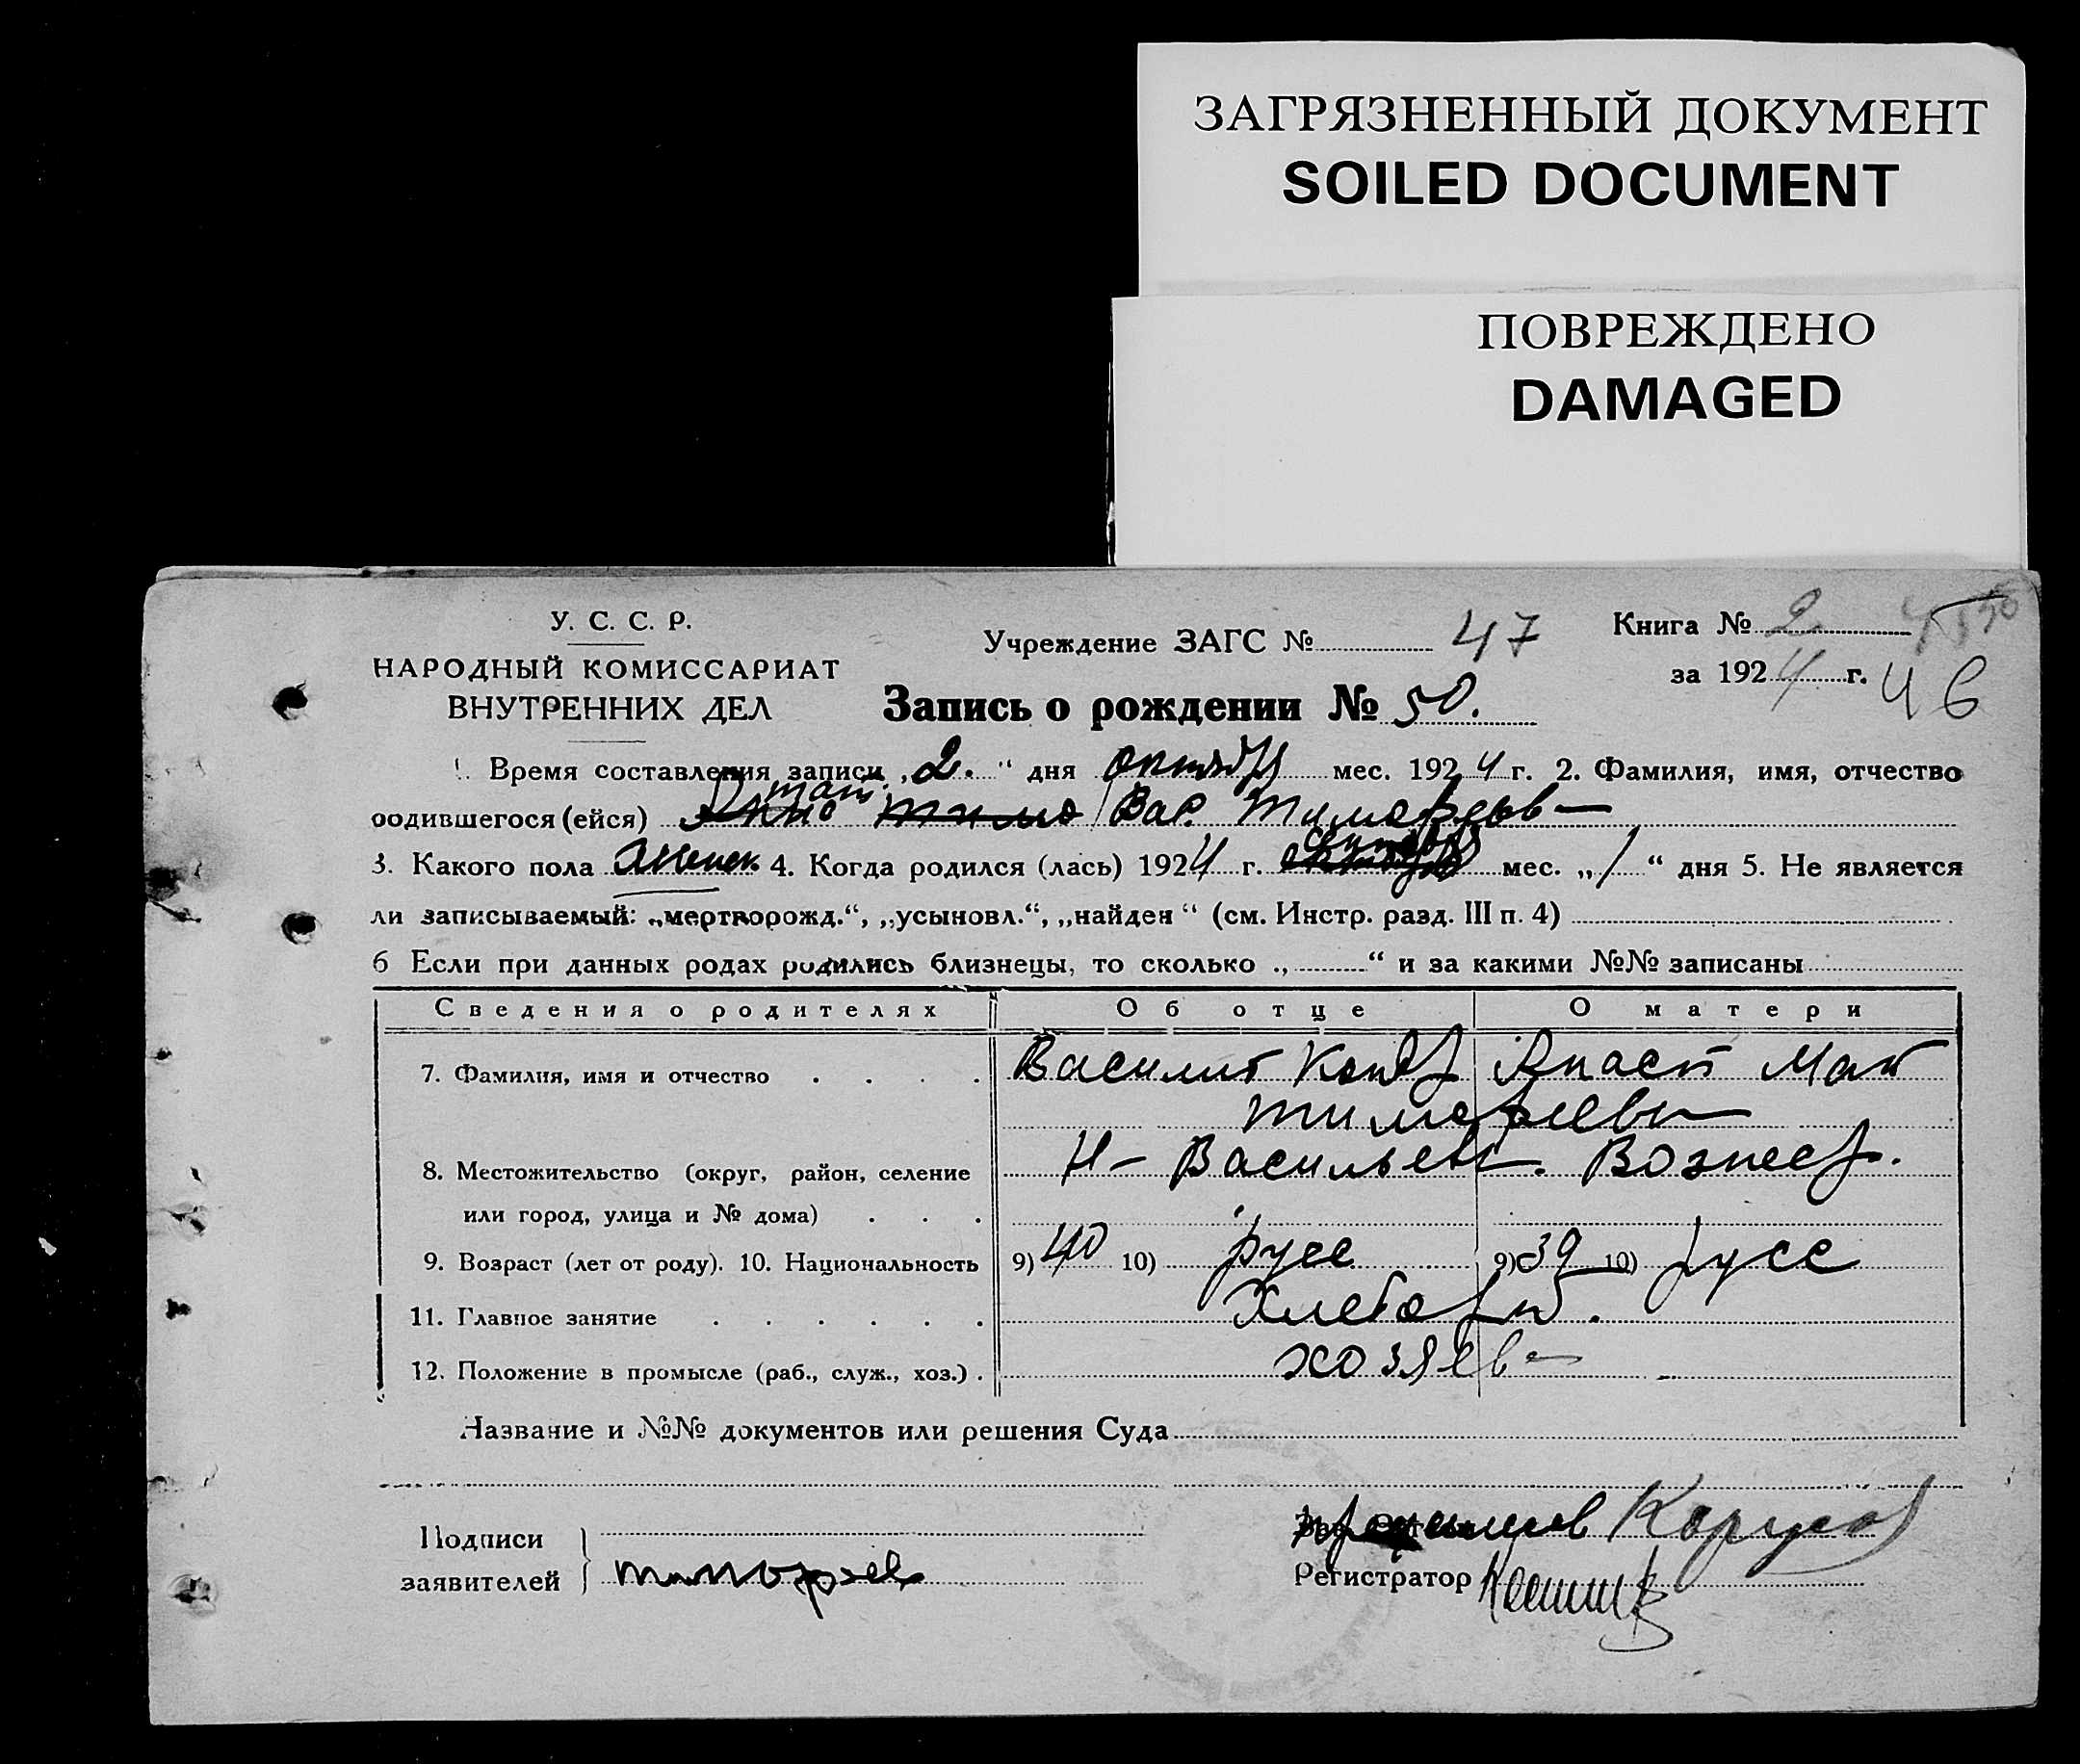 ЗАГРЯЗНЕННЫЙ ДОКУМЕНТ
SOILED DOCUMENT
ПОВРЕЖДЕНО
DAMAGED
У. С. С. Р.
НАРОДНЫЙ КОМИССАРИАТ
ВНУТРЕННИХ ДЕЛ
Учреждение ЗАГС № 47
Книга № 2
за 1924 г. 46
Запись о рождении № 50.
1. Время составления записи „2.“ дня октября мес. 1924 г. 2. Фамилия, имя, отчество
родившегося (ейся) Вас. Тимофеев
3. Какого пола женск. 4. Когда родился (лась) 1924 г. мес. „1“ дня 5. Не является
ли записываемый: „мертворожд.“, „усыновл.“, „найден“ (см. Инстр. разд. III п. 4)
6 Если при данных родах родились близнецы, то сколько „ “ и за какими №№ записаны
Сведения о родителях Об отце О матери
7. Фамилия, имя и отчество Василий Конд Анаст Мат
Тимофеевы
8. Местожительство (округ, район, селение Н-Васильевк. Вознес.
или город, улица и № дома)
9. Возраст (лет от роду). 10. Национальность 9) 40 10) русс 9) 39 10) русс
11. Главное занятие Хлебор.
12. Положение в промысле (раб., служ., хоз.) хозяев
Название и №№ документов или решения Суда
Подписи
заявителей Тимофеев
Регистратор